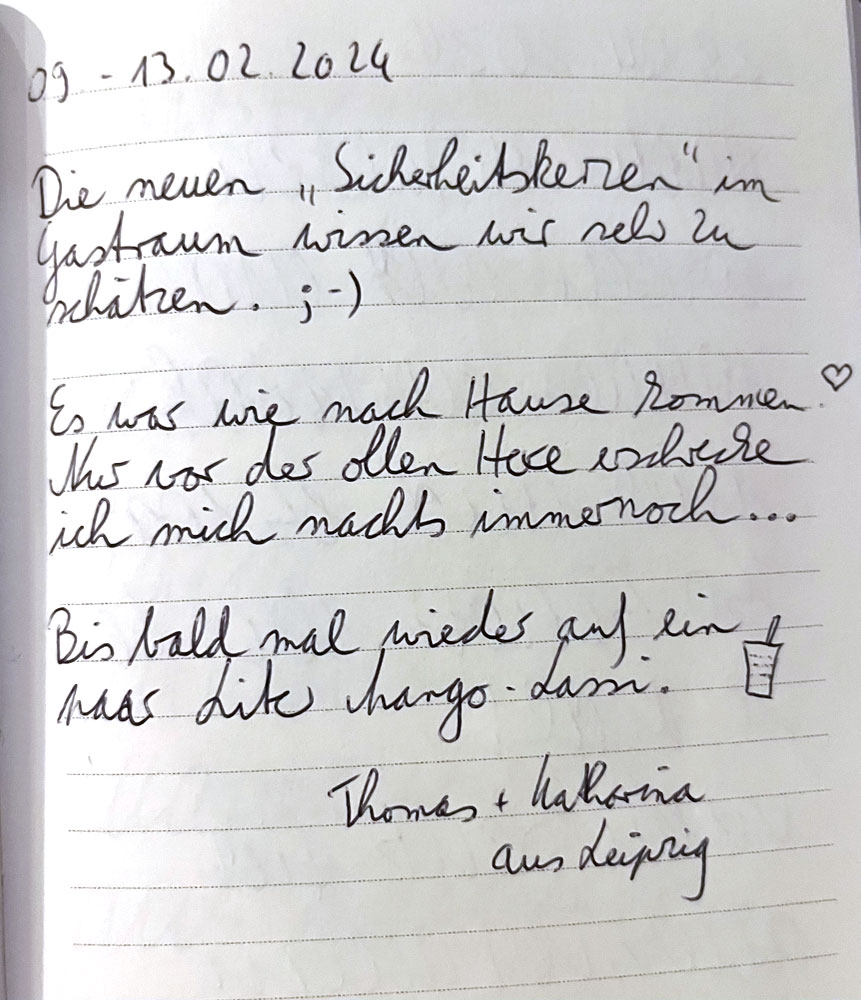 09 - 13.02.2024
Die neuen „Sicherheitskerzen“ im
Gastraum wissen wir sehr zu
schätzen. ;-)
Es war wie nach Hause kommen. ♡
Nur vor der ollen Hexe erschrecke
ich mich nachts immernoch...
Bis bald mal wieder auf ein
paar Liter Mango-Lassi.
Thomas + Katharina
aus Leipzig